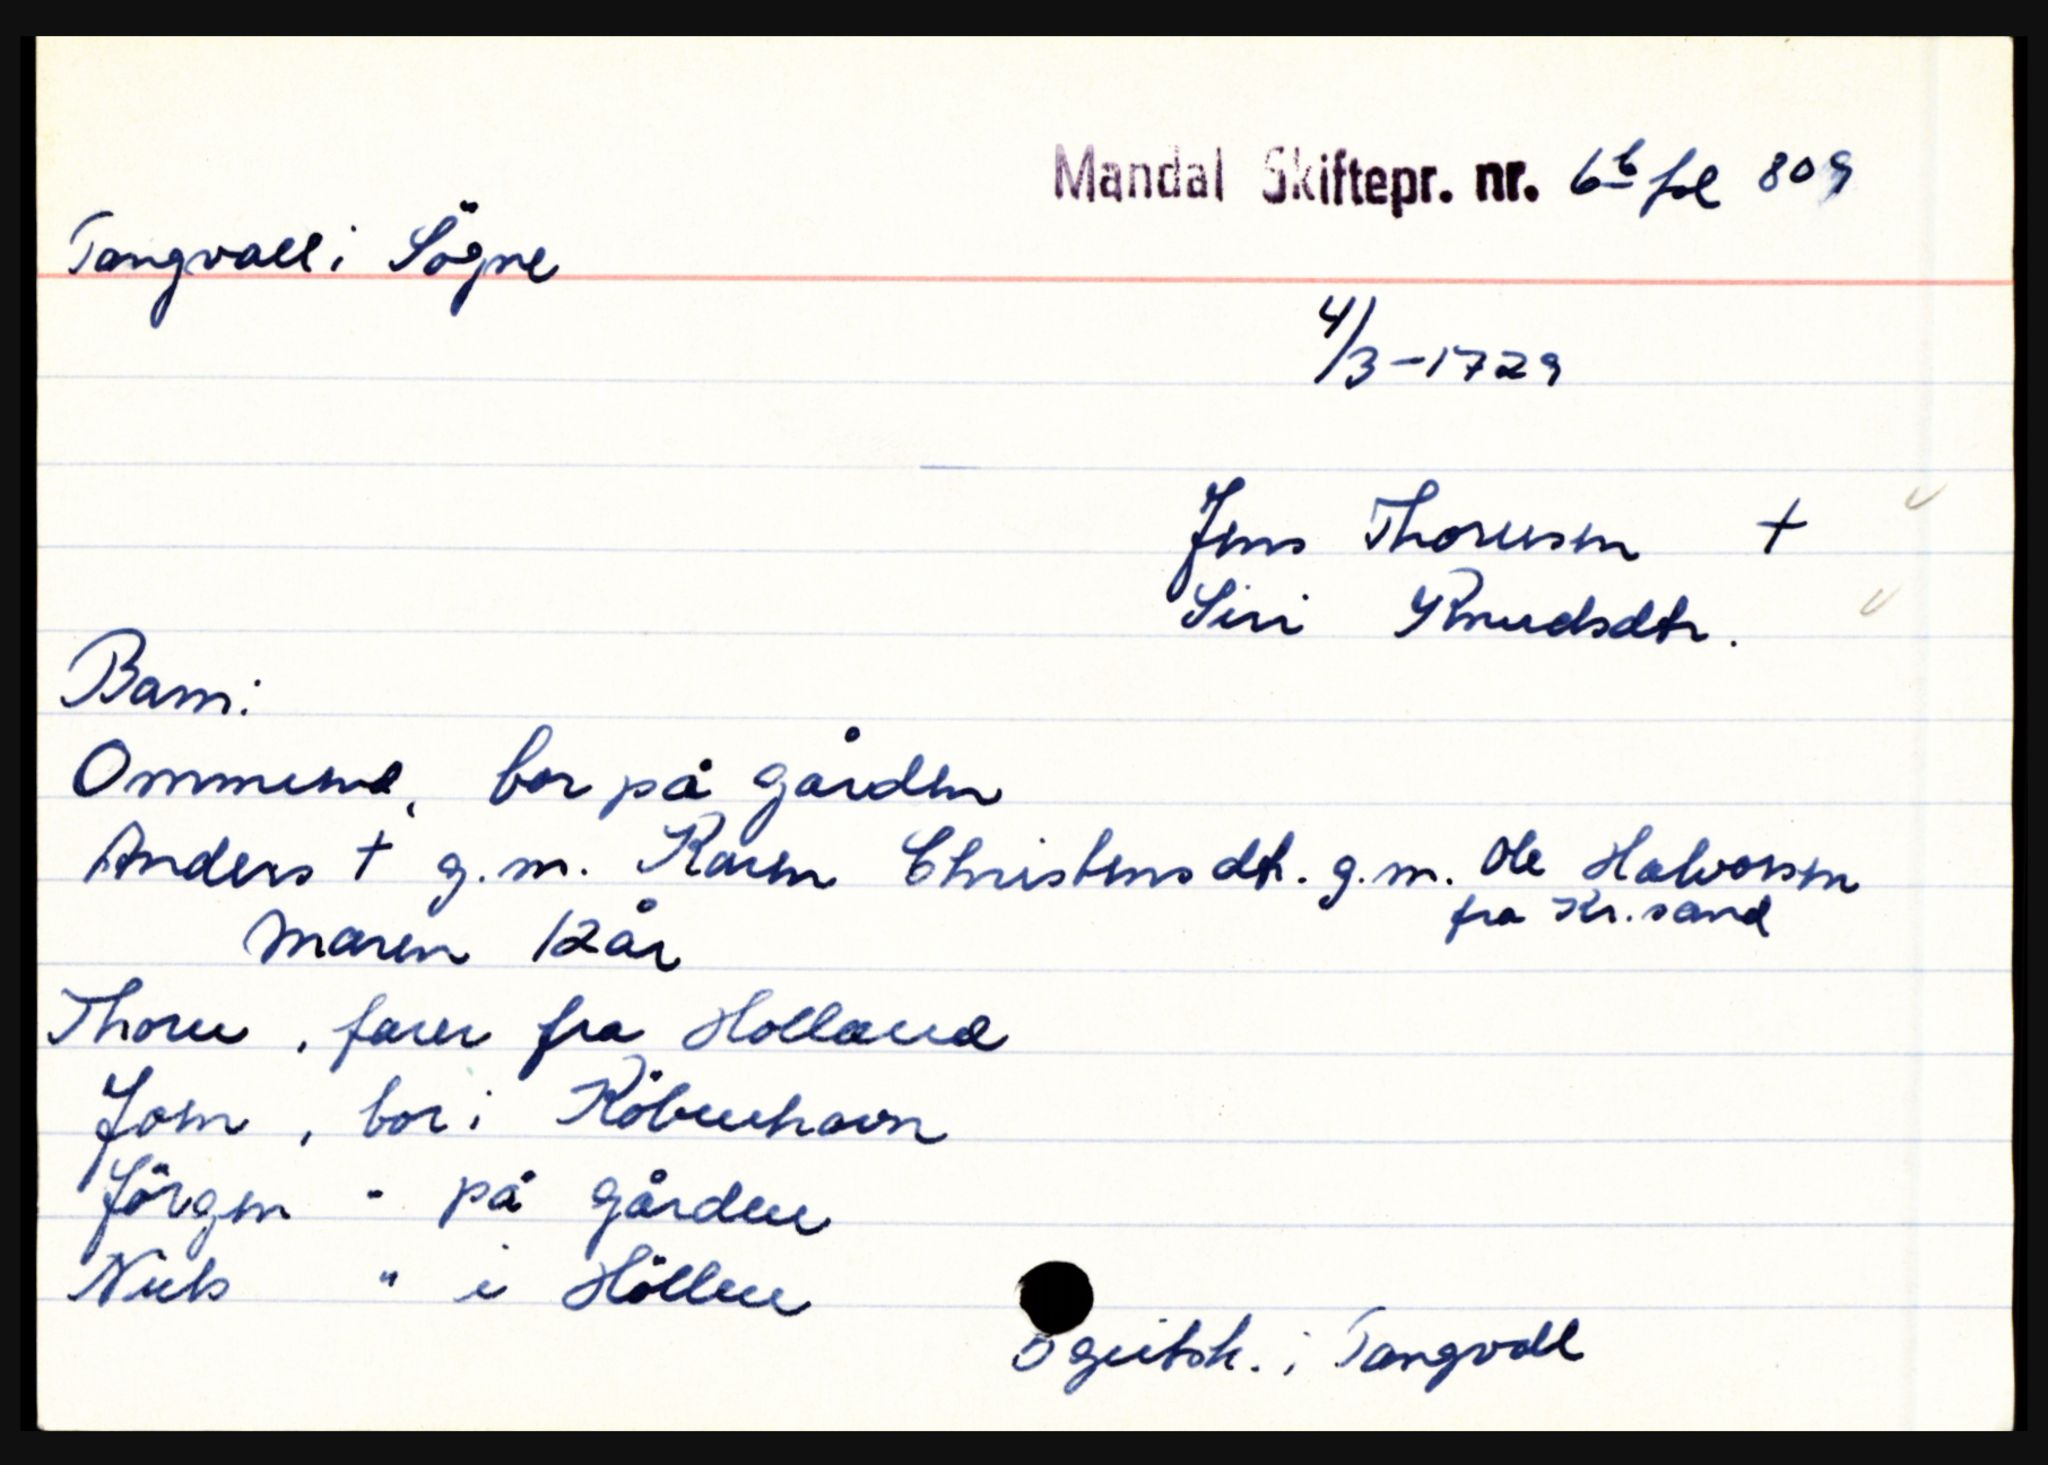 Mandal Skiftepr. nr. 6b fol 809
Tangvall i Sögne
4/3-1729
Jens Thoresen +
Siri Knudsdtr.
Barn:
Ommund, bor på gården
Anders + g.m. Karen Christensdtr. g.m. Ole Halvorsen
fra Kr.sand
Maren 12 år
Thore, farer fra Holland
Jom, bor i Köbenhavn
Jörgen " på gården
Niels " i Höllen
i Tangvall